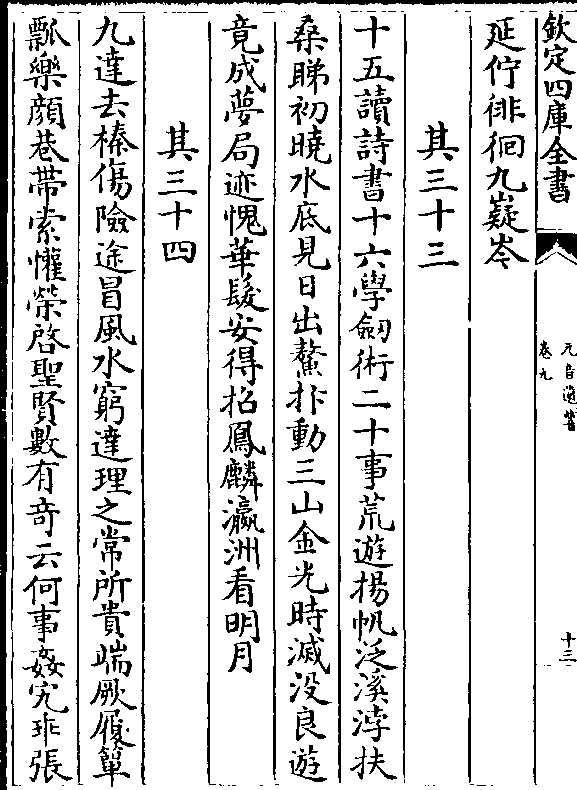 欽定四庫全書
元音遺響
卷九
十三
延佇徘徊九嶷岑
其三十三
十五讀詩書十六學劒術二十事荒遊揚帆泛溪浡扶
桑睇初曉水底見日出鰲抃動三山金光時滅没良遊
竟成夢局迹愧華髮安得招鳳麟瀛洲看明月
其三十四
九達去榛傷險途冒風水窮達理之常所貴端厥履簞
瓢樂顔巷帶索懽榮啓聖賢數有奇云何事姦宄玭張